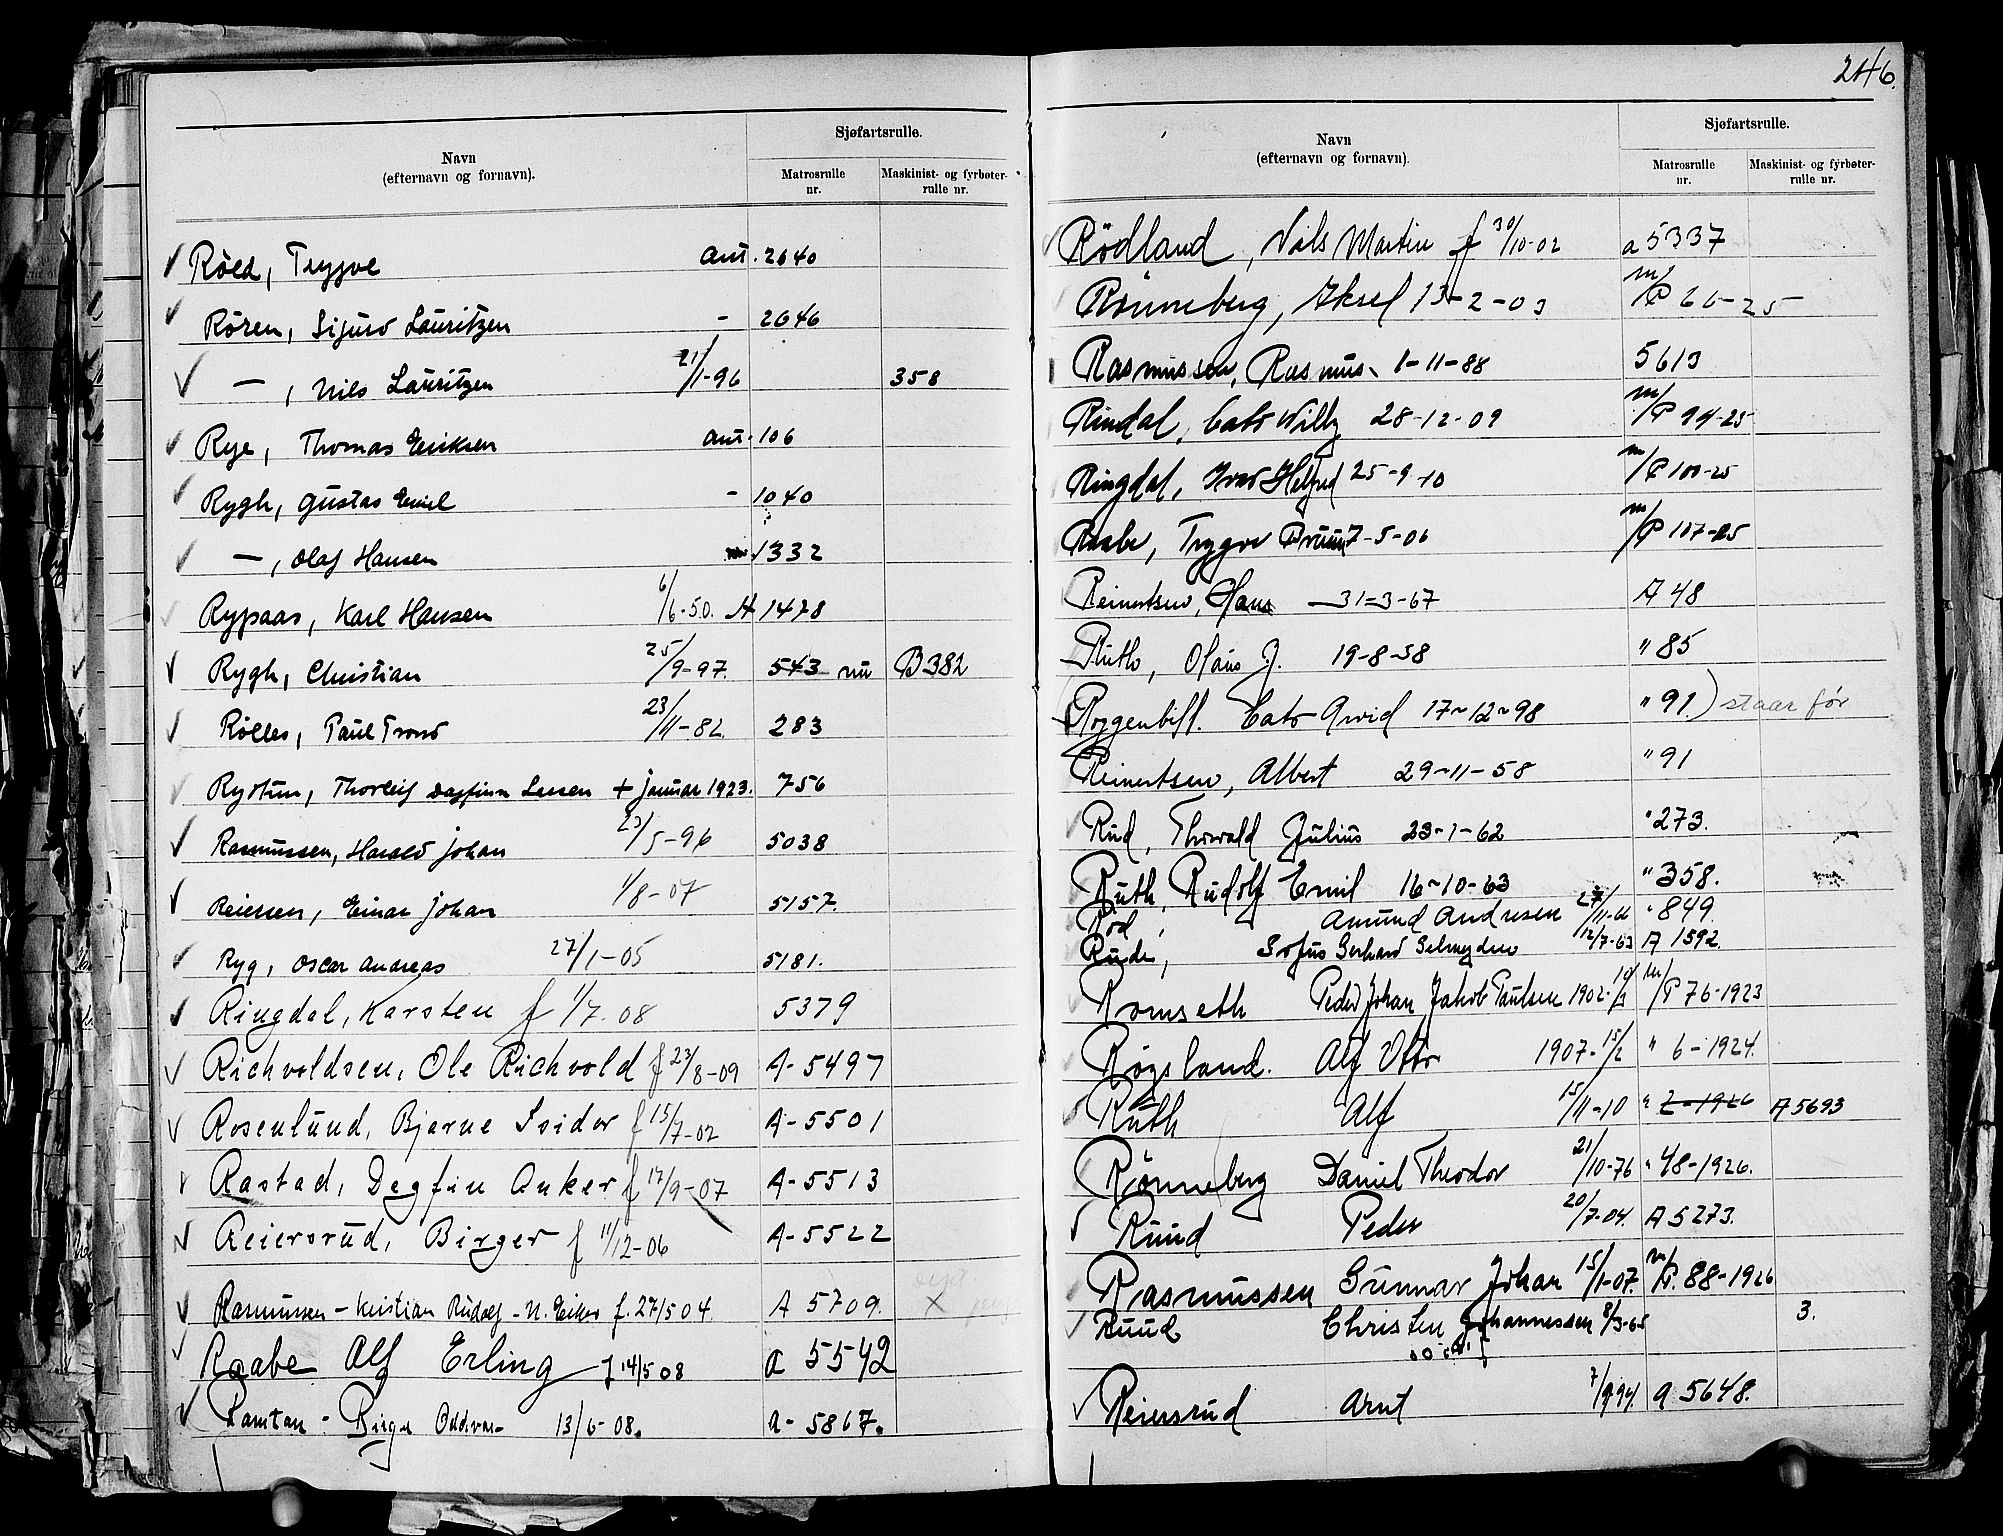 Navn
(efternavn og fornavn).
Sjøfartsrulle.
Matrosrulle nr.
Maskinist- og fyrbøter-rulle nr.
Röed, Trygve ant. 2640
Rören, Sigurd Lauritzen - 2646
—, Nils Lauritzen 21/1-96 358
Rye, Thomas Eriksen ant. 106
Rygh, Gustav Emil - 1040
—, Olaf Hansen 1332
Rypaas, Karl Hansen 6/6-50. A 1478
Rygh, Christian 25/9-97. 543 nu B 382
Rølles, Paul Trond 23/11-82. 283
Rystun, Thorleif Dagfinn Larsen + januar 1923. 756
Rasmussen, Harald Johan 23/5-96 5038
Reiersen, Einar Johan 1/8-07 5157.
Ryg, Oscar Andreas 27/1-05 5181.
Ringdal, Karsten f 1/7.08 5379
Richvoldsen, Ole Richvold f 23/8-09 A-5497
Rosenlund, Bjarne Isidor f 15/7-02 A-5501
Rastad, Dagfin Anker f 17/9-07 A-5513
Reiersrud, Birger f 11/12-06 A-5522
Rasmussen - Kristian Rudolf - N. Eiker f. 27/5 04. A 5709. X
Raabe Alf Erling f 14/5 08 a 5542
Ramtan - Birger Oddvar- 13/6-08. a-5867.
246.
Navn
(efternavn og fornavn).
Sjøfartsrulle.
Matrosrulle nr.
Maskinist- og fyrbøter-rulle nr.
Rödland, Nils Martin f 30/10-02 a 5337
Rönneberg, Aksel 13-2-03 m/P 66-25
Rasmussen, Rasmus 1-11-88 5613
Rindal, Cato Willy 28-12-09 m/P 94-25
Ringdal, Ivar Helfred 25-9-10 m/P 100-25
Raabe, Trygve Bruun 7-5-06 m/P 107-25
Reinertsen, Hans -31-3-67 A 48
Ruth, Olaus J. 19-8-58 " 85
Ryggenbill. Cato Arvid 17-12-98 " 91.) staar før
Reinertsen, Albert 29-11-58 " 91
Rud, Thorvald Julius 23-1-62 " 273.
Ruth, Rudolf Emil 16-10-63 " 358.
Röd, Amund Andresen 27/11-66 " 849.
Rude, Sofus Gerhard Selmeyden 12/7-63 A 1592.
Romseth Peder Johan Jakob Paulsen 1902-19/3 m/P 76-1923
Røgsland. Alf Otto 1907-15/2 " 6-1924.
Ruth Alf 15/11-10 " 2-1926 A 5693
Rønneberg Daniel Theodor 21/10-76 " 48-1926.
Ruud Peder 20/7-04. A 5273.
Rasmussen Gunnar Johan 15/1-07. m/P. 88-1926
Ruud Christen Johannessen 8/3-65 3.
Reiersrud Arnt 7/9 94. a 5648.